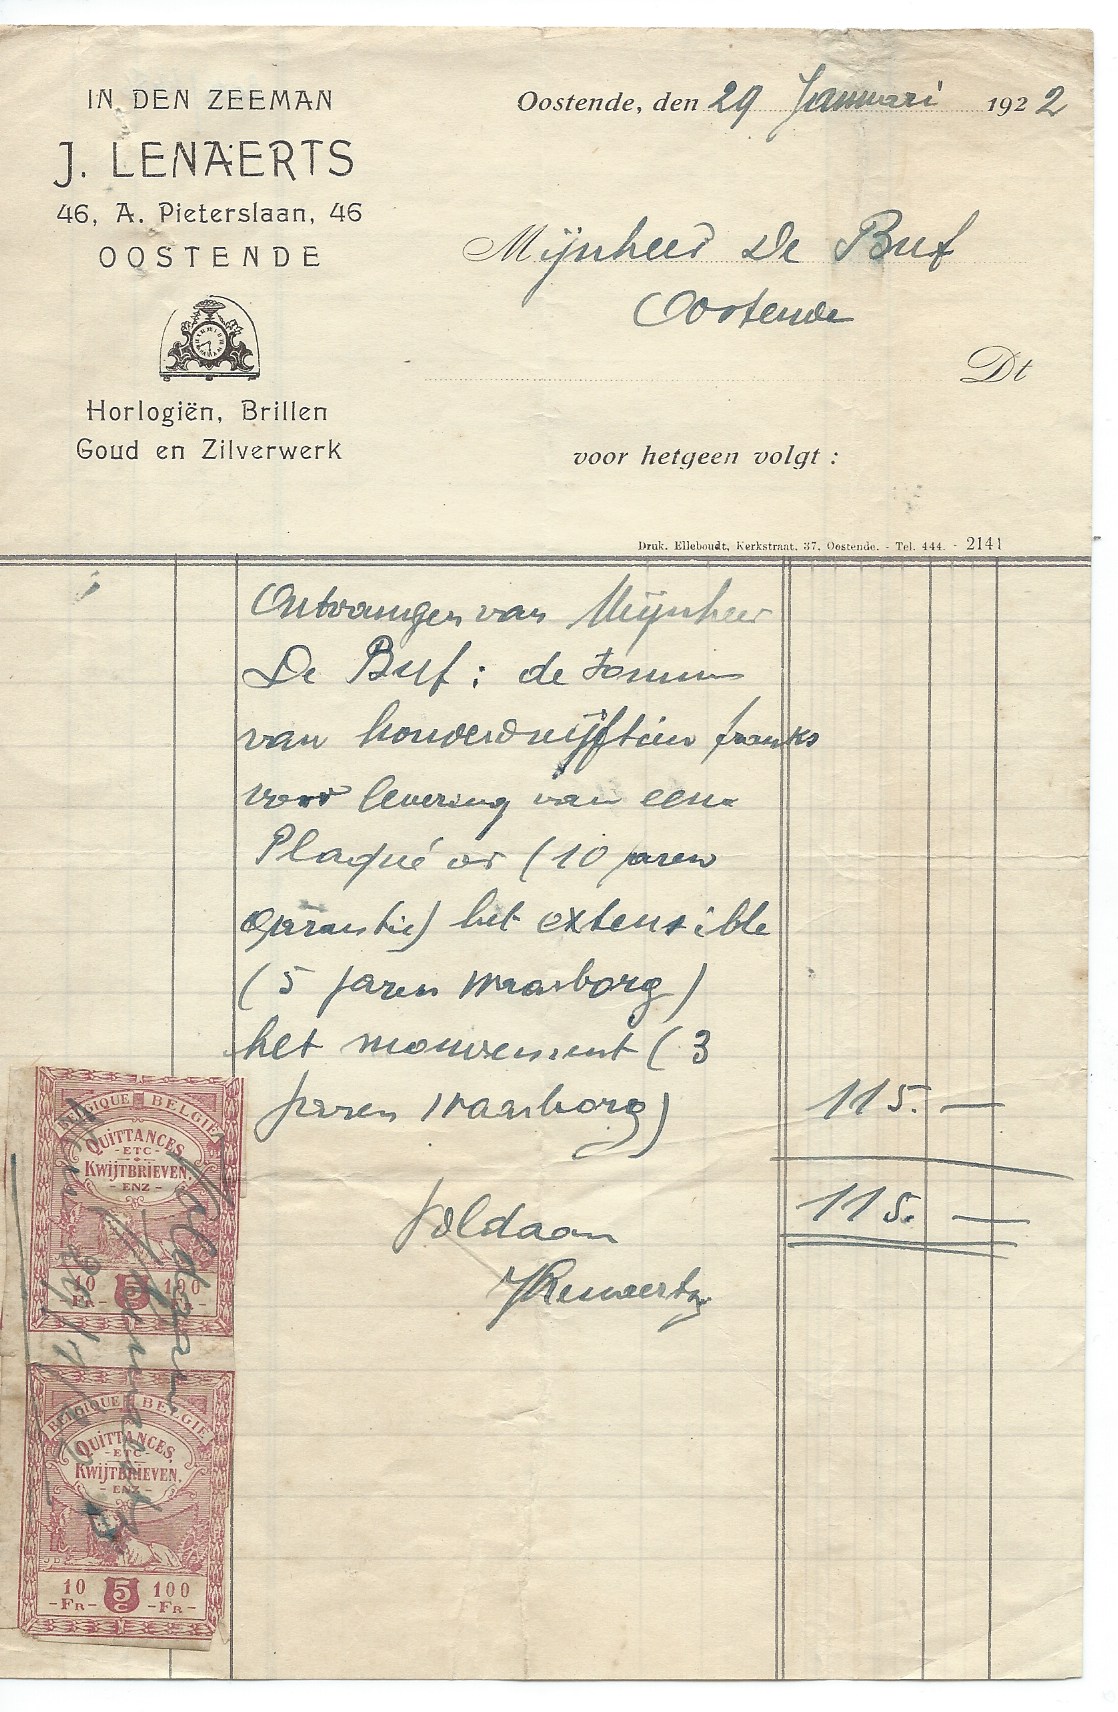 IN DEN ZEEMAN
J. LENAERTS
46, A. Pieterslaan, 46
OOSTENDE
Horlogiën, Brillen
Goud en Zilverwerk
Oostende, den 29 Januari 1922
Mijnheer De Buf
Oostende
Dt
voor hetgeen volgt :
Druk. Elleboudt, Kerkstraat. 37, Oostende. - Tel. 444. - 2141
Ontvangen van Mijnheer
De Buf : de somme
van honderdvijftien franks
voor levering van eene
Plaqué or (10 jaren
garantie) het extensible
(5 jaren waarborg)
het mouvement (3
jaren waarborg) 115. —
115. —
Voldaan
JLenaerts
BELGIQUE BELGIË
QUITTANCES
- ETC -
KWIJTBRIEVEN.
- ENZ -
10 5 100
FR- C -FR-
Voldaan
Lenaerts
BELGIQUE BELGIË
QUITTANCES,
- ETC -
KWIJTBRIEVEN.
- ENZ -
10 5 100
-FR- C -FR-